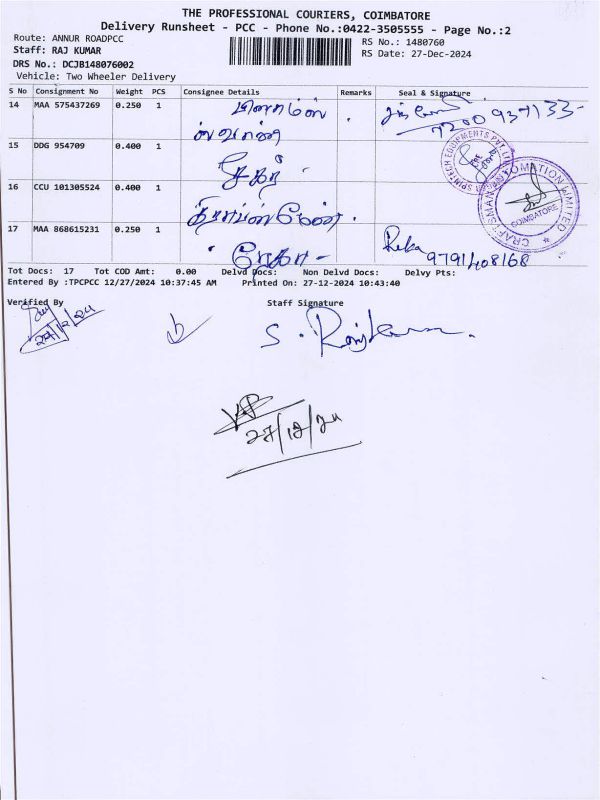 THE PROFESSIONAL COURIERS, COIMBATORE
Delivery Runsheet - PCC - Phone No.:0422-3505555 - Page No.:2
Route: ANNUR ROADPCC
RS No.: 1480760
Staff: RAJ KUMAR
RS Date: 27-Dec-2024
DRS No.: DCJB148076002
Vehicle: Two Wheeler Delivery
S No Consignment No Weight PCS Consignee Details Remarks Seal & Signature
14 MAA 575437269 0.250 1
15 DDG 954709 0.400 1
SPINTECH EQUIPMENTS PVT
16 CCU 101305524 0.400 1
CRAFTSMAN AUTOMATION LIMITED
COIMBATORE
17 MAA 868615231 0.250 1 ரேகா - Reka
9791408168
Tot Docs: 17 Tot COD Amt: 0.00 Delvd Docs: Non Delvd Docs: Delvy Pts:
Entered By :TPCPCC 12/27/2024 10:37:45 AM Printed On: 27-12-2024 10:43:40
Verified By Staff Signature
27/12/24
S. Rajkumar.
27/12/24